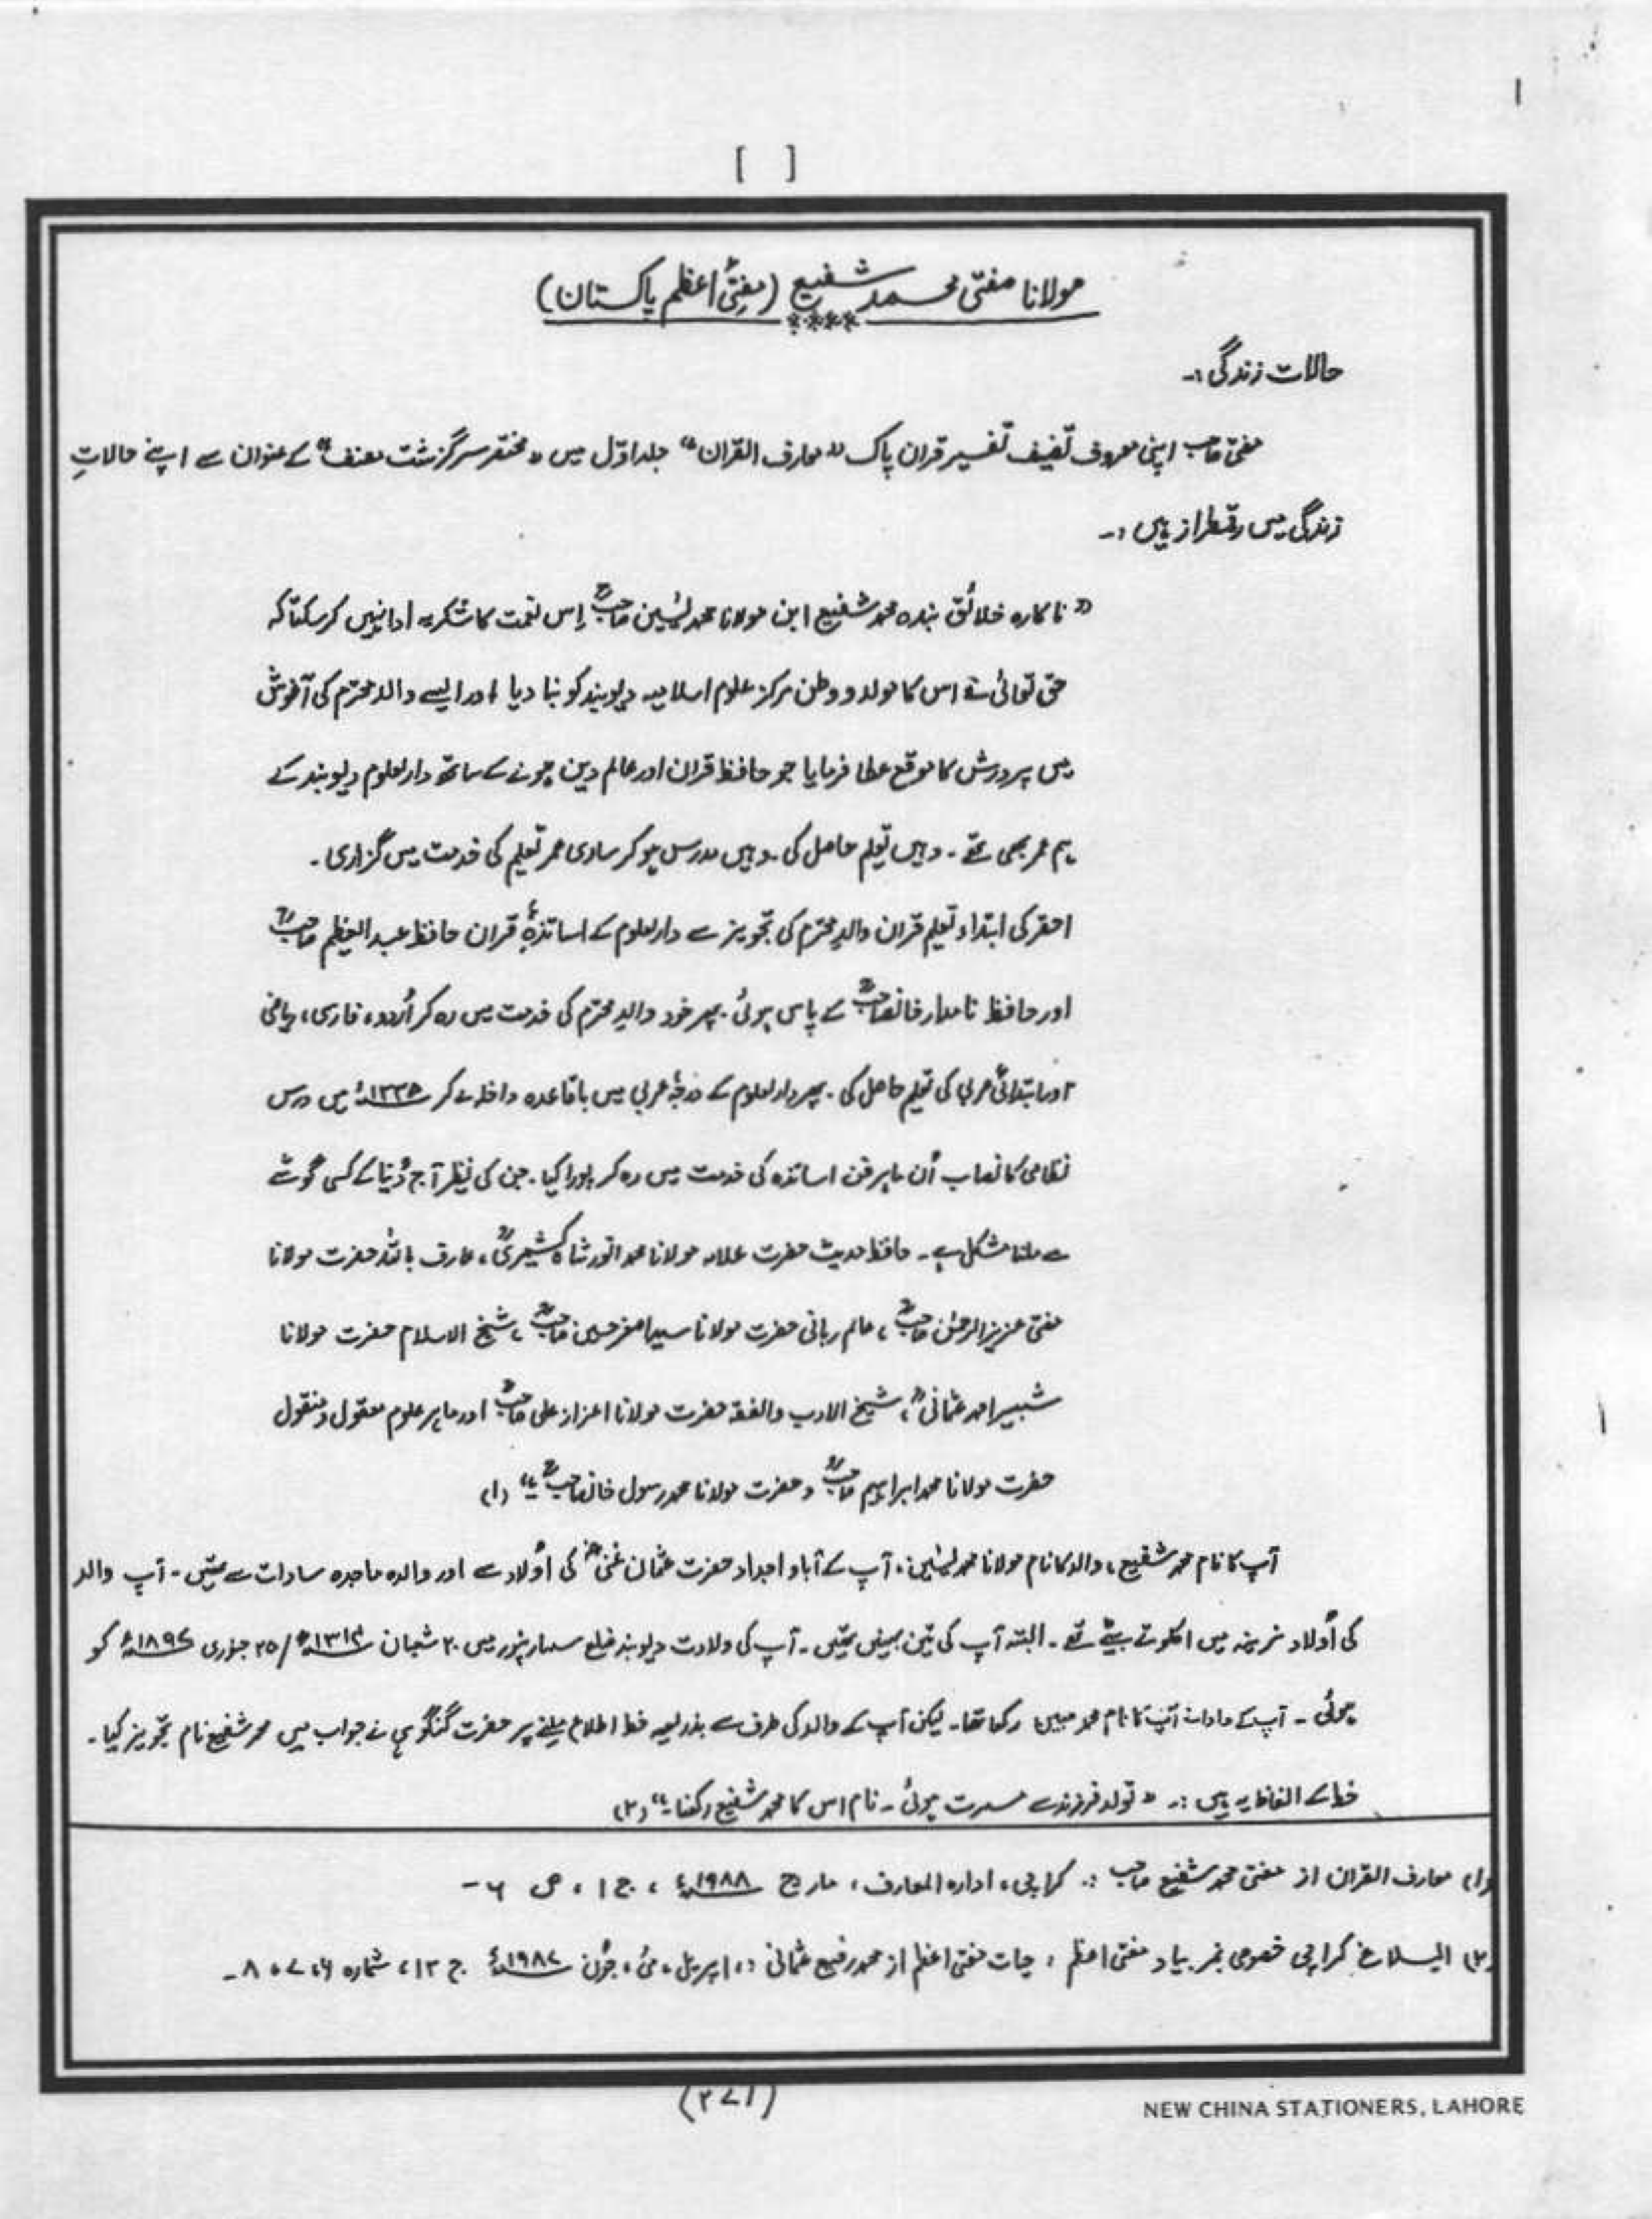 [ ]
مولانا مفتی محمد شفیع (مفتئ اعظم پاکستان)
حالات زندگی :-
مفتی صاحب اپنی معروف تصنیف تفسیر قران پاک "معارف القران" جلد اوّل میں "مختصر سرگزشت مصنف" کے عنوان سے اپنے حالاتِ
زندگی میں رقمطراز ہیں :-
"ناکارہ خلائق بندہ محمد شفیع ابن مولانا محمد یٰسین صاحبؒ اِس نعمت کا شکریہ ادا نہیں کرسکتا کہ
حق تعالیٰ نے اس کا مولد و وطن مرکز علوم اسلامیہ دیوبند کو بنا دیا اور ایسے والد محترم کی آغوش
میں پرورش کا موقع عطا فرمایا جو حافظ قران اور عالم دین ہونے کے ساتھ دارلعلوم دیوبند کے
ہم عمر بھی تھے ۔ وہیں تعلیم حاصل کی ۔ وہیں مدرس ہو کر ساری عمر تعلیم کی خدمت میں گزاری ۔
احقر کی ابتداء تعلیم قران والدِ محترم کی تجویز سے دارلعلوم کے اساتذۂ قران حافظ عبد العظیم صاحبؒ
اور حافظ نامدار خانصاحبؒ کے پاس ہوئی ۔ پھر خود والدِ محترم کی خدمت میں رہ کر اُردو، فارسی، ریاضی
اور ابتدائی عربی کی تعلیم حاصل کی ۔ پھر دارلعلوم کے درجۂ عربی میں باقاعدہ داخلہ لے کر ۱۳۳۵ھ میں درس
نظامی کا نصاب اُن ماہر فن اساتذہ کی خدمت میں رہ کر پورا کیا ۔ جن کی نظیر آج دُنیا کے کسی گوشے
سے ملنا مشکل ہے ۔ حافظ حدیث حضرت علامہ مولانا محمد انور شاہ کشمیریؒ، عارف باللہ حضرت مولانا
مفتی عزیز الرحمٰن صاحبؒ، عالم ربانی حضرت مولانا سید اصغر حسین صاحبؒ، شیخ الاسلام حضرت مولانا
شبیر احمد عثمانیؒ، شیخ الادب والفقہ حضرت مولانا اعزاز علی صاحبؒ اور ماہر علوم معقول و منقول
حضرت مولانا محمد ابراہیم صاحبؒ و حضرت مولانا محمد رسول خانصاحبؒ ۔" (۱)
آپ کا نام محمد شفیع، والد کا نام مولانا محمد یٰسین، آپ کے آباو اجداد حضرت عثمان غنیؓ کی اولاد سے اور والدہ ماجدہ سادات سے تھیں ۔ آپ والد
کی اَولاد نرینہ میں اکلوتے بیٹے تھے ۔ البتہ آپ کی تین بہنیں تھیں ۔ آپ کی ولادت دیوبند ضلع سہارنپور میں ۲۰ شعبان ۱۳۱۴ھ/ ۲۵ جنوری ۱۸۹۷ء کو
ہوئی ۔ آپ کے دادا نے آپ کا نام محمد مبین رکھا تھا ۔ لیکن آپ کے والد کی طرف سے بذریعہ خط اطلاع ملنے پر حضرت گنگوہی نے جواب میں محمد شفیع نام تجویز کیا ۔
خط کے الفاظ یہ ہیں :- "تولد فرزند سے مسرت ہوئی ۔ نام اس کا محمد شفیع رکھنا ۔" (۲)
(۱) معارف القران از مفتی محمد شفیع صاحب :. کراچی، ادارہ المعارف، مارچ ۱۹۸۸ء، ج ۱، ص ۶ -
(۲) البلاغ کراچی خصوصی نمبر بیاد مفتی اعظم، حیات مفتی اعظم از محمد رفیع عثمانی :، اپریل، مئی، جُون ۱۹۸۷ء ج ۱۳، شمارہ ۶، ۷، ۸ -
(۲۷۱)
NEW CHINA STATIONERS, LAHORE